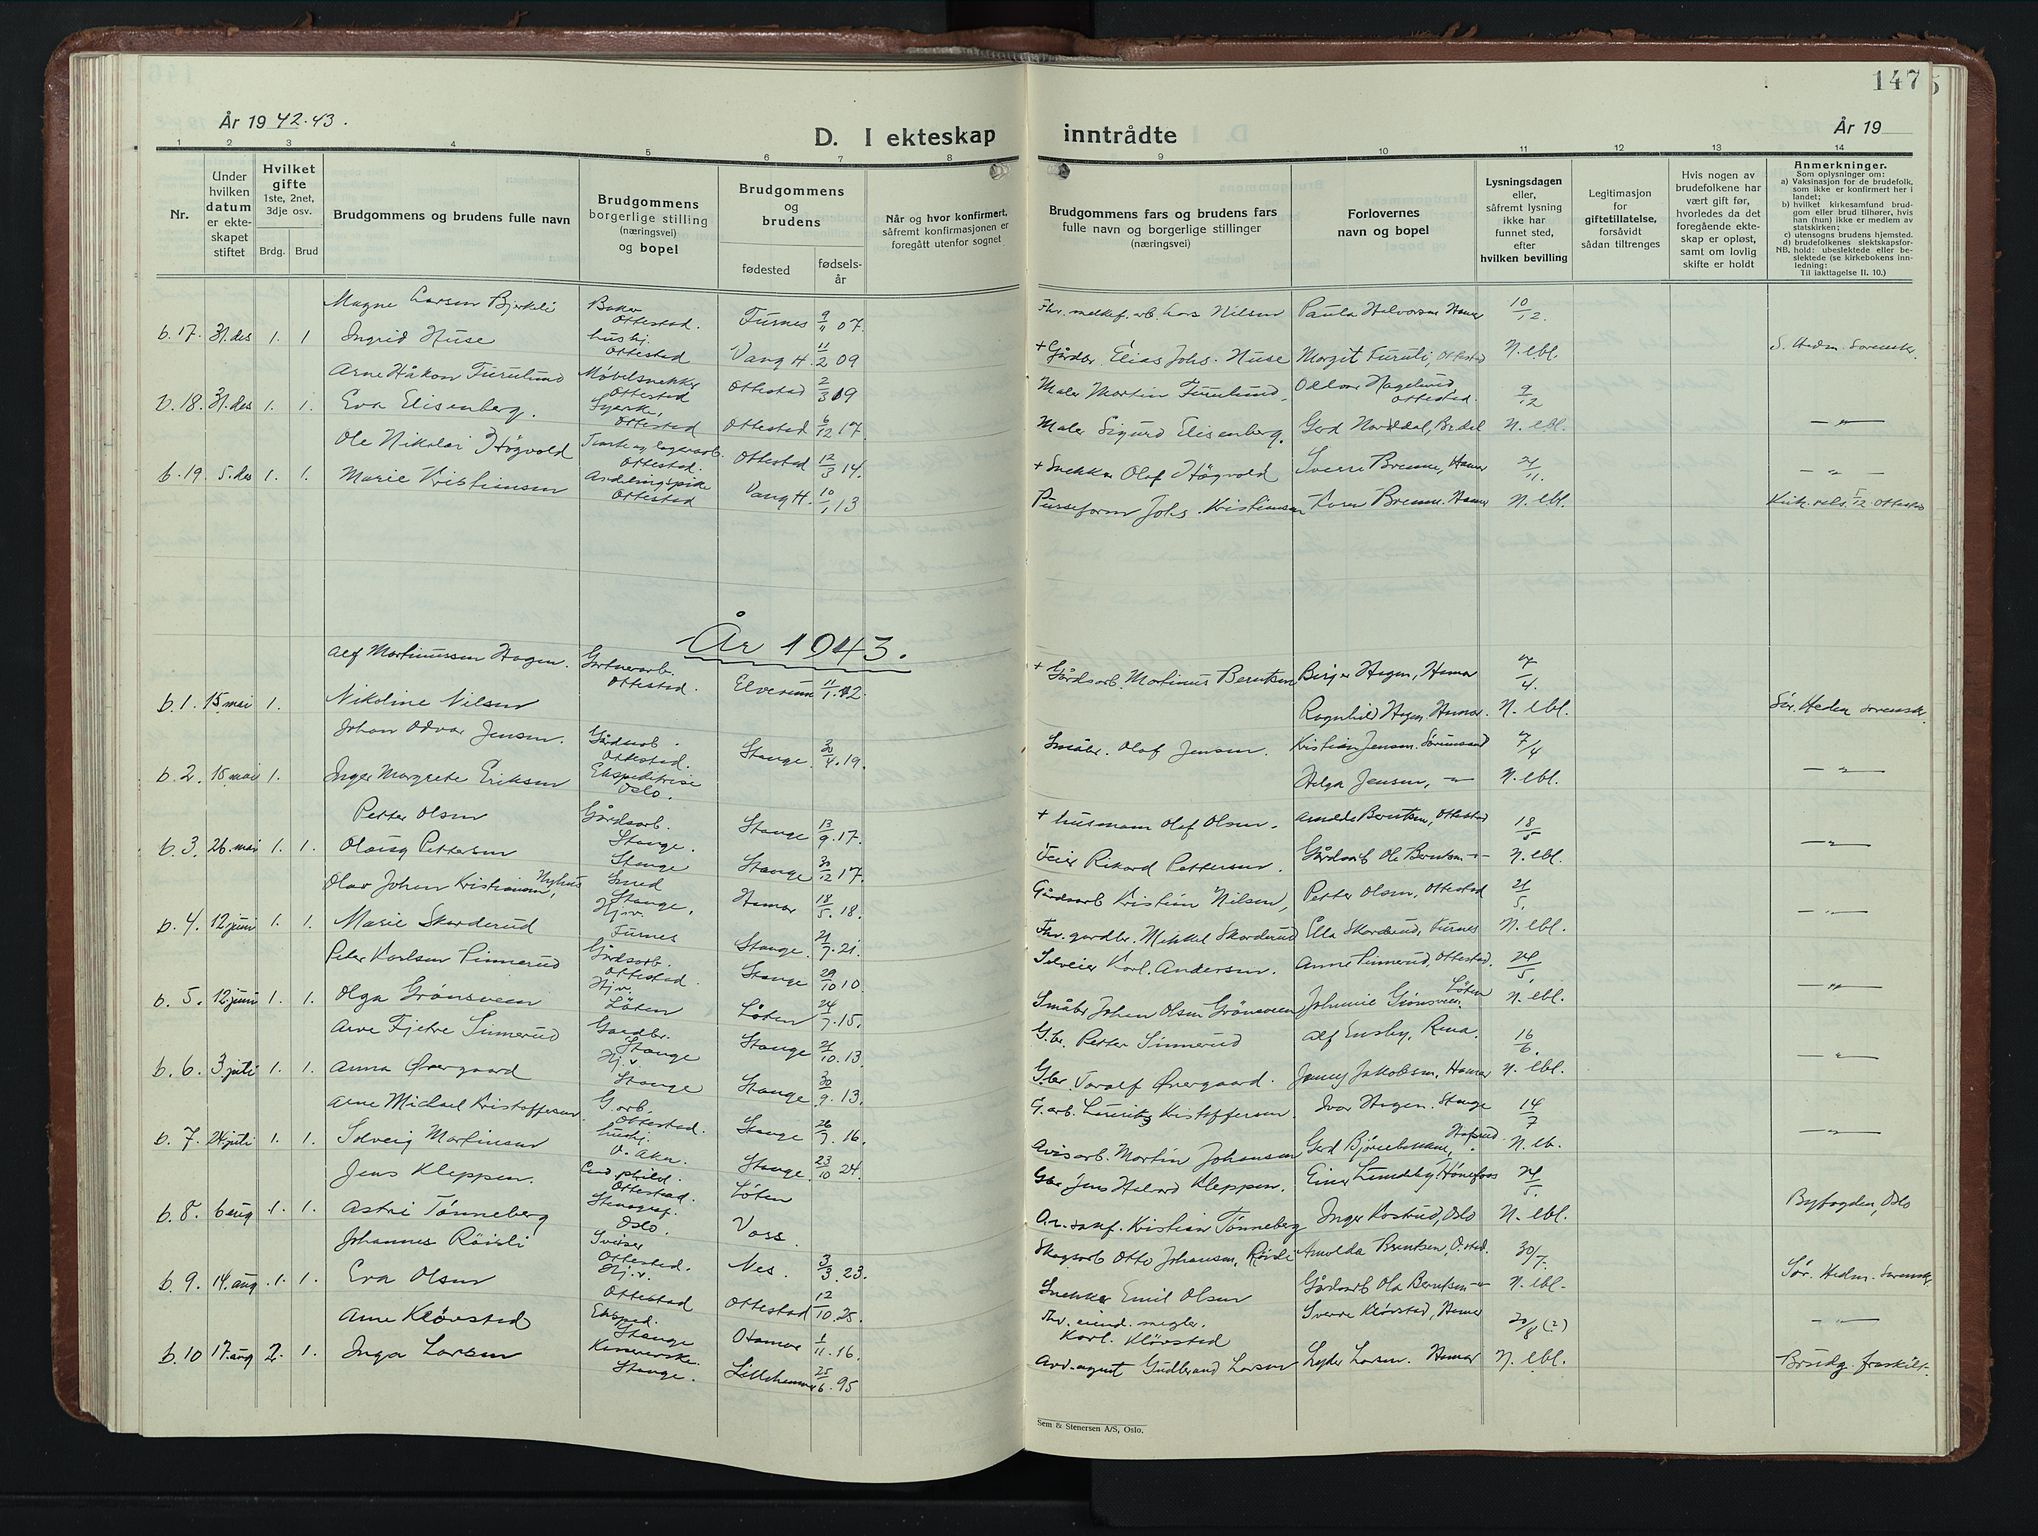 År 19 42-43.
D. I ekteskap inntrådte
147
År 19
1 2 3 4 5 6 7 8 9 10 11 12 13 14
Nr.
Under hvilken datum er ekteskapet stiftet
Hvilket gifte 1ste, 2net, 3dje osv.
Brdg. Brud
Brudgommens og brudens fulle navn
Brudgommens borgerlige stilling (næringsvei) og bopel
Brudgommens og brudens
fødested
fødselsår
Når og hvor konfirmert, såfremt konfirmasjonen er foregått utenfor sognet
Brudgommens fars og brudens fars fulle navn og borgerlige stillinger (næringsvei)
Forlovernes navn og bopel
Lysningsdagen eller, såfremt lysning ikke har funnet sted, efter hvilken bevilling
Legitimasjon for giftetillatelse, forsåvidt sådan tiltrenges
Hvis nogen av brudefolkene har vært gift før, hvorledes da det foregående ekteskap er opløst, samt om lovlig skifte er holdt
Anmerkninger.
Som oplysninger om:
a) Vaksinasjon for de brudefolk, som ikke er konfirmert her i landet;
b) hvilket kirkesamfund brudgom eller brud tilhører, hvis han (hun) ikke er medlem av statskirken;
c) utensogns brudens hjemsted.
d) brudefolkenes slektskapsforhold: ubeslektede eller beslektede (se kirkebokens innledning:
NB. Til iakttagelse II. 10.)
Magne Larsen Bjerkeli Baker Ottestad. Furnes 9/11 07. Fhv. melkef. arb. Lars Nilsen Paula Halvorsen Hamar 10/12.
b. 17. 31. des 1. 1 Ingrid Huse hush. Ottestad Vang H. 11/2 09 + Gårdbr. Elias Johs. Huse Margit Furuli, Ottestad N. lbl. S. Hedm. Sorensk.
Arne Håkon Furulund Møbelsnekker Ottestad Ottestad 2/3 09 Maler Martin Furulund, Hagelund, Ottestad. 9/12
b. 18. 31. des 1. 1. Eva Elisenberg. Syerske, Ottestad Ottestad 6/12 17. Maler Sigurd Elisenberg. Gerd Norddal, N. lbl. —„—
Ole Nikolai Høgvold Tomte og lagerarb. Ottestad. Ottestad 12/3 14. + Snekker Olaf Høgvold Sverre Bremne, Hamar 21/11.
b. 19 5. des 1. 1. Marie Kristiansen Avdelingspike Ottestad Vang H. 10/1 13 Johs. Kristiansen Bremne. Hamar N. lbl. Kirk. vels. 5/12 Ottestad
År 1943.
Alf Martinussen Hagen. Gartnerarb. Ottestad. Elverum 11/1. 12. + Gårdsarb. Martinus Berntsen Birger Hagen, Hamar 7/4.
b. 1. 15 mai 1. Nikoline Nilsen Ragnhild Hagen. Hamar. N. lbl. Sør. Hedm sorensk.
Johan Odvar Jensen. Gårdsarb. Ottestad. Stange. 30/4. 19. Småbr. Olaf Jensen. Kristian Jensen. 7/4
b. 2. 15 mai 1. Inger Margrete Eriksen Ekspeditrise Oslo. Helga Jensen, —„— N. lbl. —„—
Petter Olsen Gårdsarb. Stange. Stange 13/9. 17. + husmann Olaf Olsen. Berntsen, Ottestad 18/5
b. 3. 26. mai 1. 1. Olaug Pettersen Stange Stange 30/12 17. Feier Rikard Pettersen. Gårdsarb Ole Berntsen —„— N. lbl. —„—
Olav Johan Kristiansen Nyhus, Smed Stange, Hamar 18/5. 18. Gårdsarb Kristian Nilsen, Petter Olsen, Ottestad 21/5.
b. 4. 12 juni 1. 1. Marie Skarderud Hj.v. Furnes Stange. 21/7. 21. Fhv. gardbr. Mikkel Skarderud Ella Skarderud, Furnes N. lbl. —„—
Peter Karlsen Pinnerud Gårdsarb. Ottestad. Stange 29/10 10 Selveier Karl. Andersen. Anne Pinnerud, Ottestad. 24/5
b. 5. 12 juni 1. 1. Olga Grønsveen Hj.v. Løten Løten 24/7. 15. Småbr Johan Olsen Grønsveen Johnnie Grønsveen Løten N. lbl. —„—
Arve Fjetre Sinnerud Gardbr. Stange Stange 21/10. 13 G.br. Petter Sinnerud Alf Ensby, Rena. 16/6.
b. 6. 3 juli 1. 1. Anna Øvergaard Hj.v. Stange Stange 30/9. 13. G.br. Toralf Øvergaard. Jenny Jakobsen, Hamar N. lbl. —„—
Arne Michael Kristoffersen G.arb. Ottestad. Stange 26/7. 16. G.arb. Lauritz Kristoffersen. Ivar Hagen. Stange 14/7
b. 7. 24 juli 1. 1. Solveig Martinsen hushj. V. Aker. Stange. 23/10 24. Avisarb. Martin Johansen Gerd N. lb. —„—
Jens Kleppen. Ottestad. Løten Gbr Jens Halvard Kleppen. Einar Lundeby, Hønefoss 24/5.
b. 8. 6 aug 1. 1. Astri Tønneberg Stenograf. Oslo. Voss. Kristian Tønneberg Inger Kostrud, Oslo N. lbl. Byfogden, Oslo
Johannes Røisli Sveiser Ottestad. Nes. 3/3. 23. Skogsarb Otto Johansen, Røisli Arnolda Berntsen, O.stad. 30/7.
b. 9. 14. aug. 1. 1. Eva Olsen Hj.v. Ottestad Ottestad 12/10. 25. Snekker Emil Olsen Gårdsarb Ole Berntsen —„— N. lbl. Sør. Hedm. Sorensk.
Arne Kløvstad Eksped. Stange Hamar 1/11. 16. Fhv. eiend. megler. Karl. Kløvstad Sverre Kløvstad, Hamar 20/8 (2) —„—
b. 10 17. aug 2. 1. Inga Larsen Stange. Lillehammer 25/6. 95 Avd. agent Gudbrand Larsen Lyder Larsen. Hamar N. lbl. Brudg. fraskilt.
Sem & Stenersen A/S, Oslo.